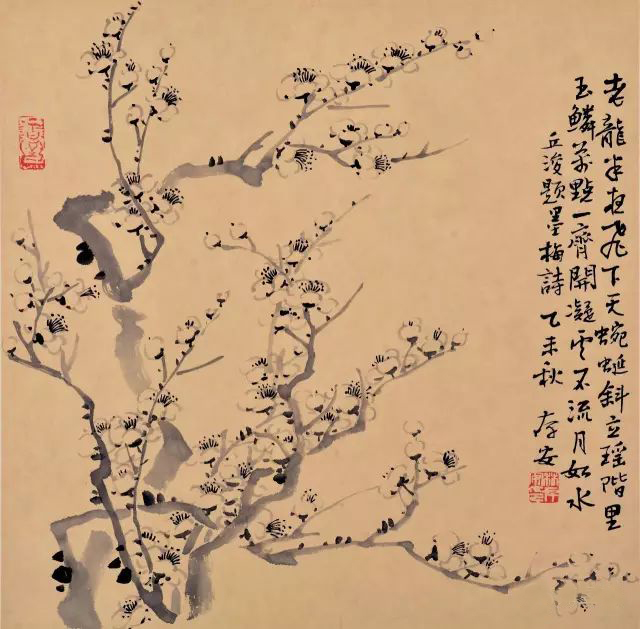 老龍半夜飛下天蜿蜒斜立瑤階里
玉鱗萬點一齊開凝雲不流月如水
丘浚題墨梅詩乙未秋 存安